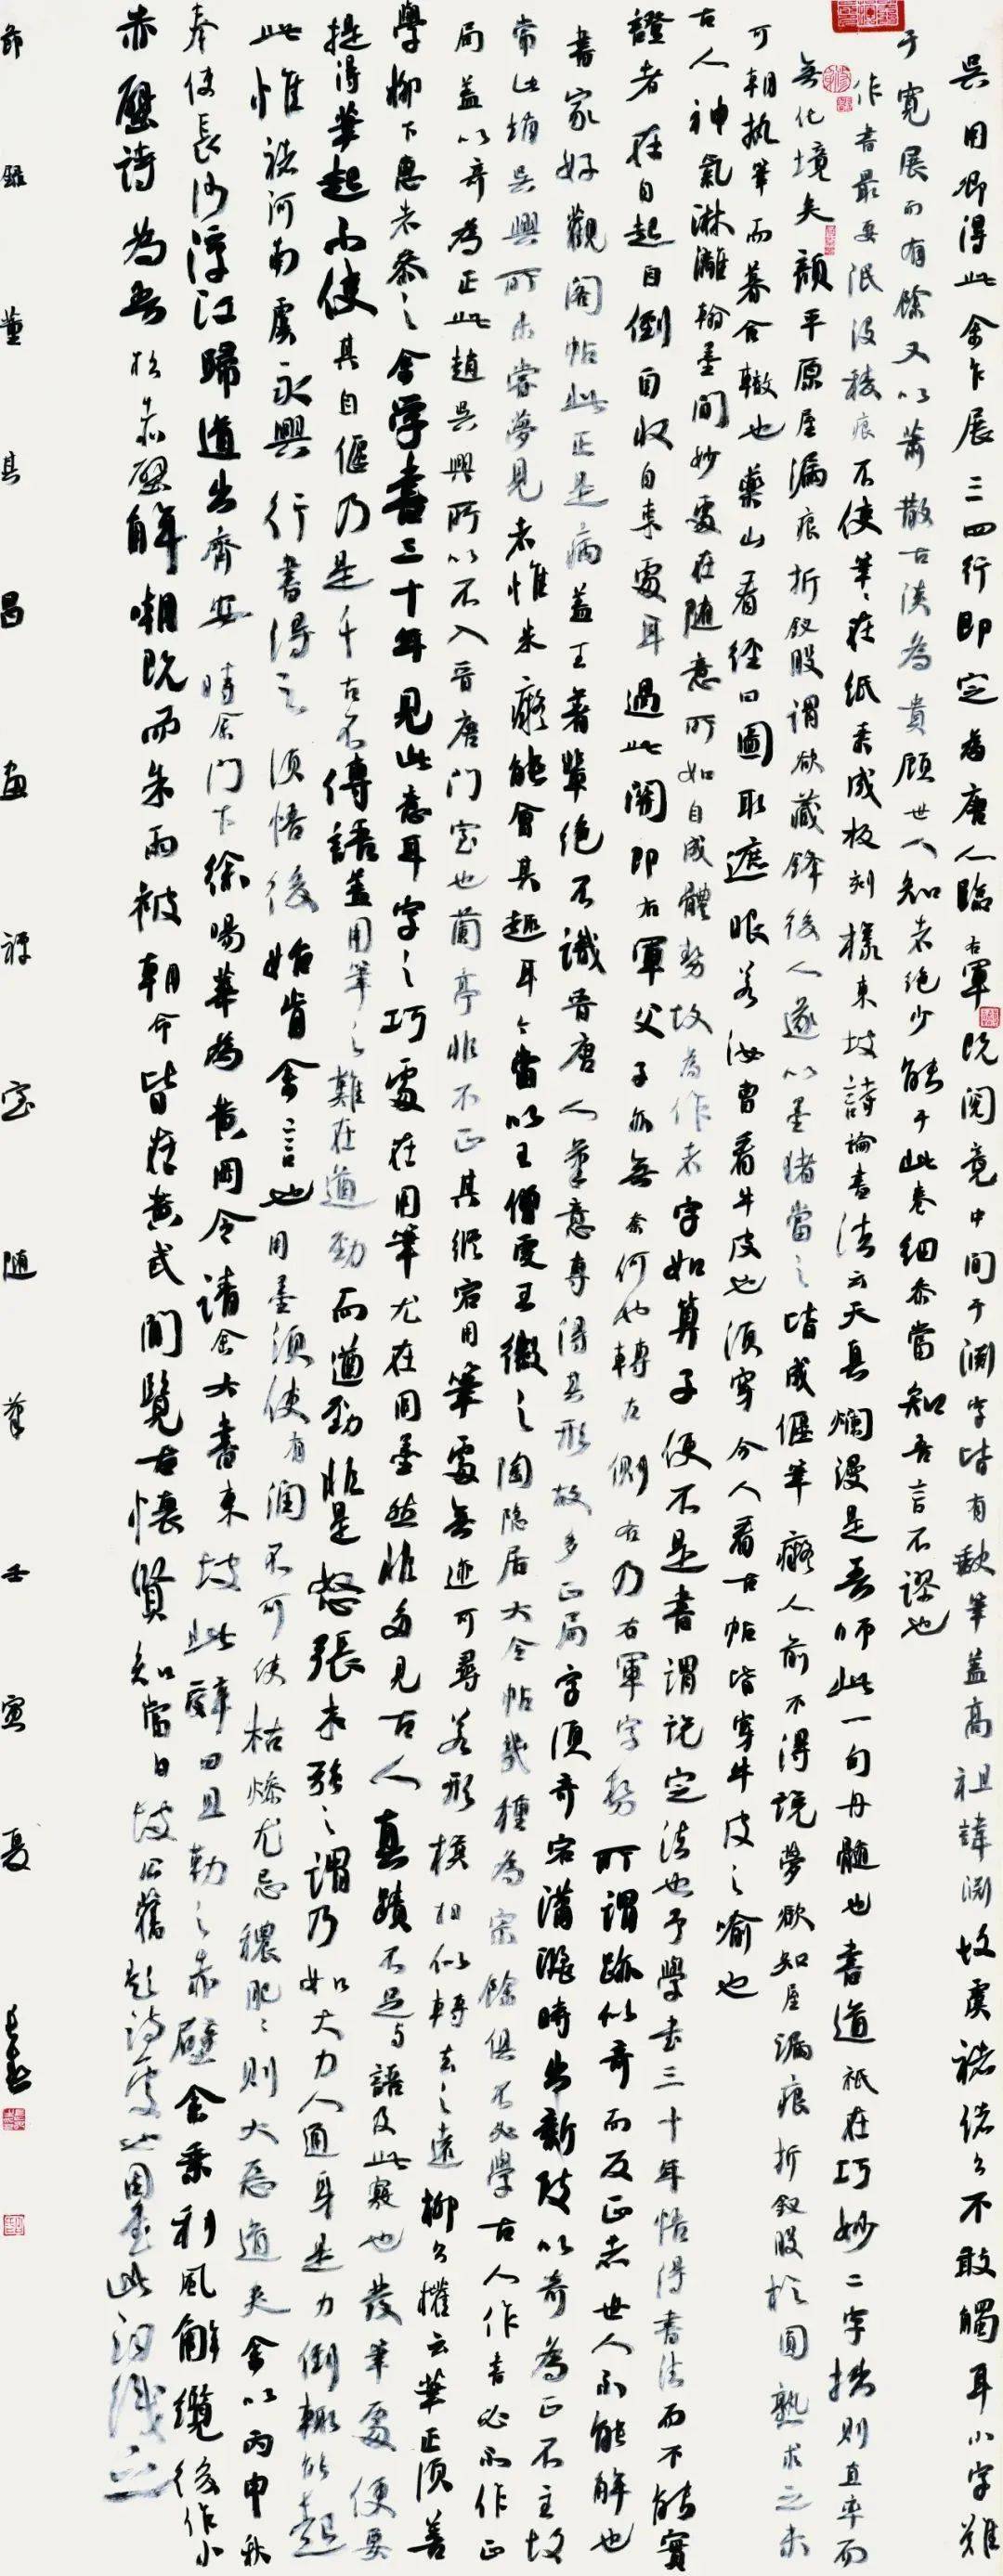 吳用卿得此余乍展三四行即定為唐人臨右軍既閱竟中間于淵字皆有缺筆蓋高祖諱淵故虞褚諸公不敢觸耳小字難
于寬展而有餘又以蕭散古淡為貴顧世人知者絕少能于此卷細參當知吾言不謬也
作書最要泯沒稜痕不使筆筆在紙素成板刻樣東坡詩論書法云天真爛漫是吾師此一句丹髓也書道祇在巧妙二字拙則直率而
無化境矣顏平原屋漏痕折釵股謂欲藏鋒後人遂以墨猪當之皆成偃筆癡人前不得說夢欲知屋漏痕折釵股於圓熟求之未
可朝執筆而暮合轍也藥山看經曰圖取遮眼若汝曹看牛皮也須穿今人看古帖皆穿牛皮之喻也
古人神氣淋漓翰墨間妙處在隨意所如自成體勢故為作者字如算子便不是書謂說定法也予學書三十年悟得書法而不能實
證者在自起自倒自收自束處耳過此關即右軍父子亦無奈何也轉左側右乃右軍字勢所謂跡似奇而反正者世人不能解也
書家好觀閣帖此正是病蓋王著輩絕不識晉唐人筆意專得其形故多正局字須奇宕瀟灑時出新致以奇為正不主故
常此趙吳興所未嘗夢見者惟米癡能會其趣耳今當以王僧虔王徽之陶隱居大令帖幾種為宗餘俱不必學古人作書必不作正
局蓋以奇為正此趙吳興所以不入晉唐門室也蘭亭非不正其縱宕用筆處無迹可尋若形模相似轉去之遠柳公權云筆正須善
學柳下惠者參之余学書三十年見此意耳字之巧處在用筆尤在用墨然非多見古人真蹟不足與語及此竅也發筆處便要
提得筆起不使其自偃乃是千古不傳語蓋用筆之難在遒勁而遒勁非是怒張木強之謂乃如大力人通身是力倒輒能起
此惟褚河南虞永興行書得之須悟後始肯余言也用墨須使有潤不可使枯燥尤忌穠肥肥則大惡道矣余以丙申秋
奉使長沙浮江歸道出齊安時余門下徐暘華為黃岡令請余大書東坡此辭曰且勒之赤壁余乘利風解纜後作小
赤壁詩為吾松赤壁解嘲既而朱雨被朝命皆在黃武間覽古懷賢知當日坡公舊題詩處也因書此詞識之
節錄董其昌畫禪室隨筆壬寅夏